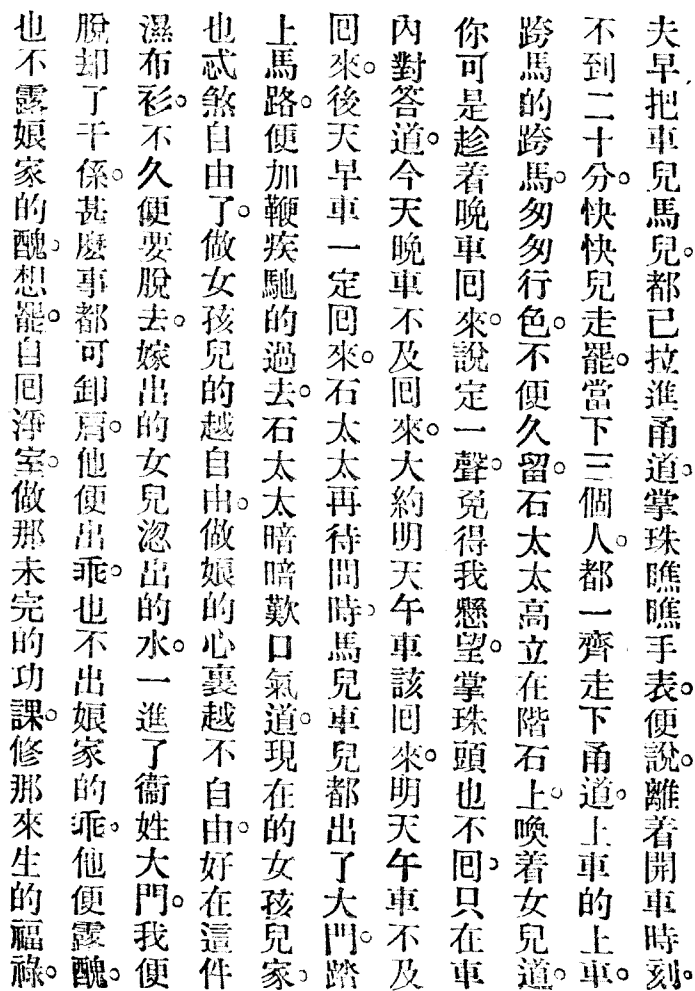 夫早把車兒馬兒。都已拉進甬道。掌珠瞧瞧手表。便說。離着開車時刻。
不到二十分。快快兒走罷。當下三個人。都一齊走下甬道。上車的上車。
跨馬的跨馬。匆匆行色。不便久留。石太太高立在階石上。喚着女兒道。
你可是趁着晚車回來。說定一聲。免得我懸望。掌珠頭也不回。只在車
內對答道。今天晚車不及回來。大約明天午車該回來。明天午車不及
回來。後天早車一定回來。石太太再待問時。馬兒車兒都出了大門。踏
上馬路。便加鞭疾馳的過去。石太太暗暗歎口氣道。現在的女孩兒家。
也忒煞自由了。做女孩兒的越自由。做娘的心裏越不自由。好在這件
濕布衫。不久便要脫去。嫁出的女兒。㴔出的水。一進了衞姓大門。我便
脫却了干係。甚麽事都可卸肩。他便出乖。也不出娘家的乖。他便露醜。
也不露娘家的醜。想罷。自回淨室。做那未完的功課。修那來生的福祿。